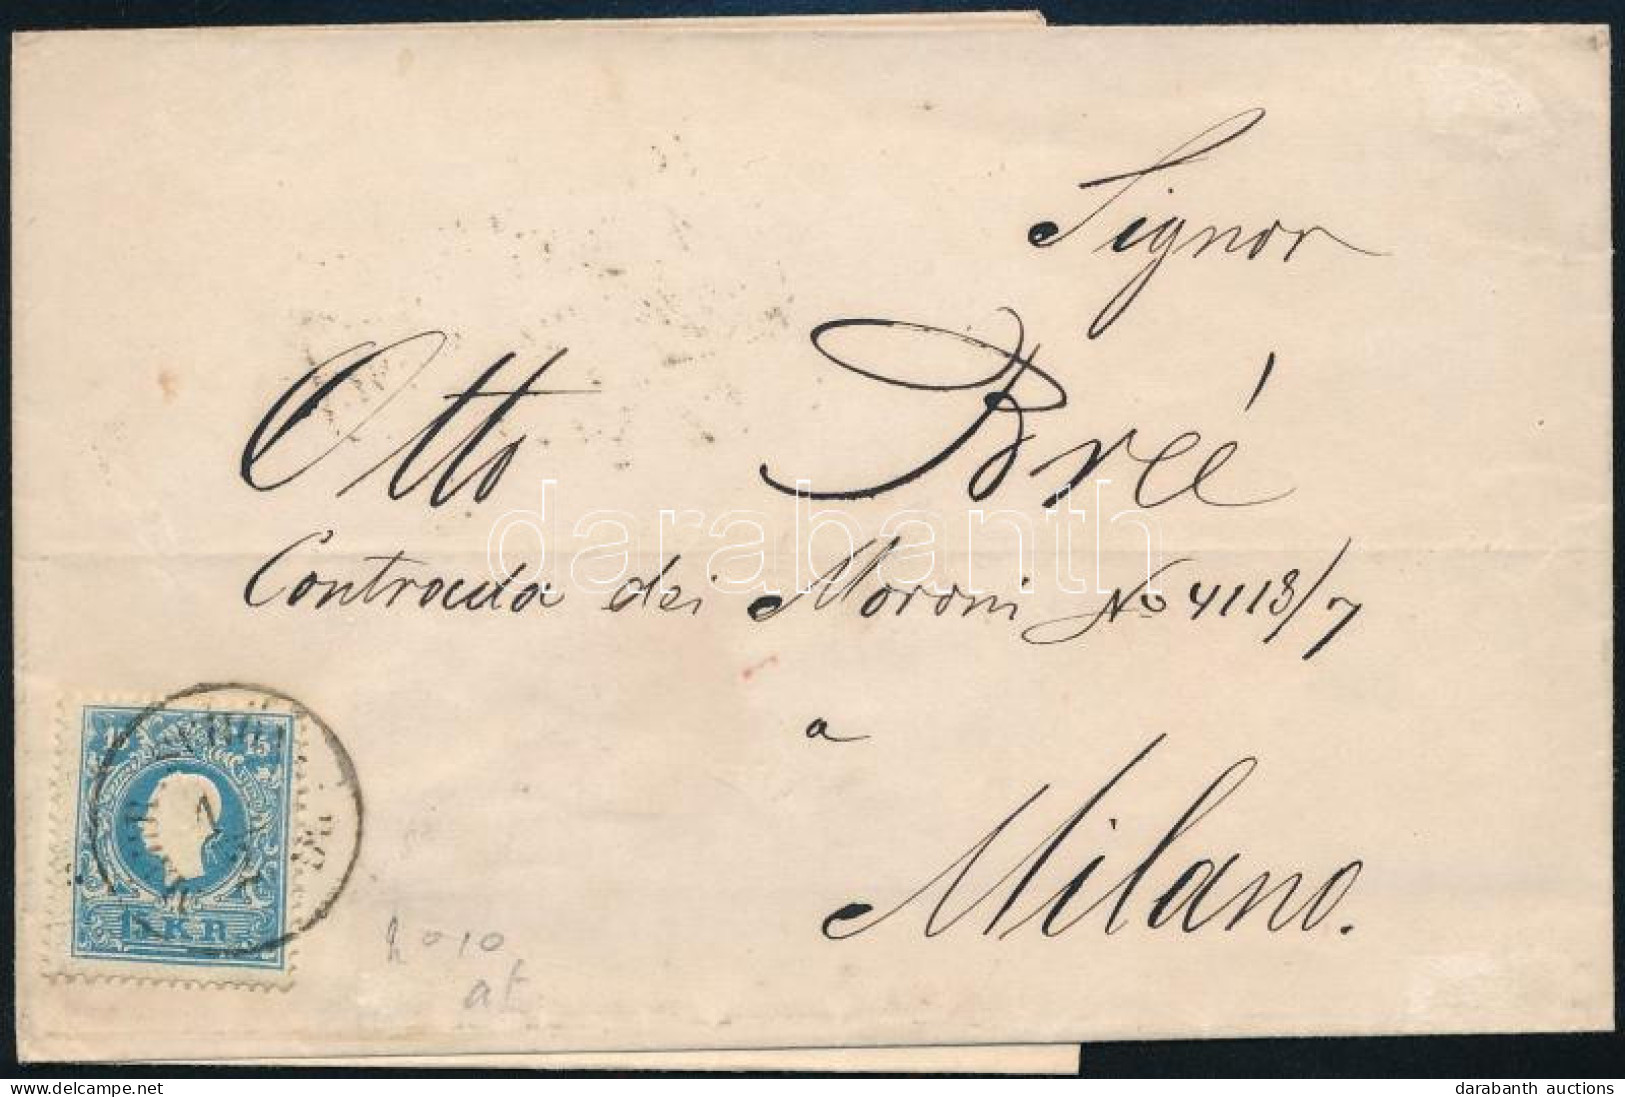 Signor
Otto Breé
Contrada dei Moroni No 4113/7
a
Milano.
15 15
15 KR
darabanth
www.delcampe.net
darabanth auctions